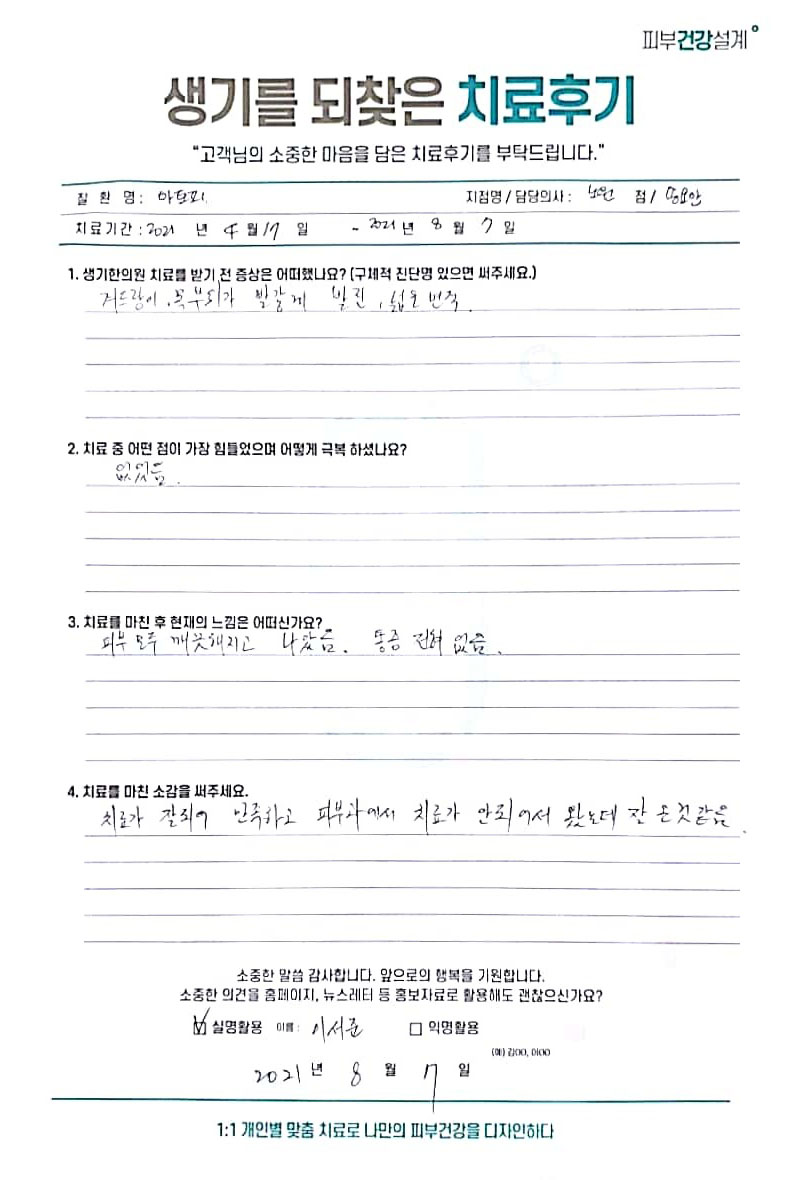 피부건강설계
생기를 되찾은 치료후기
"고객님의 소중한 마음을 담은 치료후기를 부탁드립니다."
질 환 명 : 아토피 지점명 / 담당의사 : 노원 점 /
치료기간 : 2021 년 4 월 17 일 ~ 2021 년 8 월 7 일
1. 생기한의원 치료를 받기 전 증상은 어떠했나요? (구체적 진단명 있으면 써주세요.)
겨드랑이, 목부위가 빨갛게 발진, 넓은 번짐.
2. 치료 중 어떤 점이 가장 힘들었으며 어떻게 극복 하셨나요?
없었음.
3. 치료를 마친 후 현재의 느낌은 어떠신가요?
피부 모두 깨끗해지고 나았음. 통증 전혀 없음.
4. 치료를 마친 소감을 써주세요.
치료가 잘되어 만족하고 피부과에서 치료가 안되어서 왔는데 잘 온것 같음.
소중한 말씀 감사합니다. 앞으로의 행복을 기원합니다.
소중한 의견을 홈페이지, 뉴스레터 등 홍보자료로 활용해도 괜찮으신가요?
실명활용 이름 : 이서준 익명활용
(예) 김OO, 이OO
2021 년 8 월 7 일
1:1 개인별 맞춤 치료로 나만의 피부건강을 디자인하다